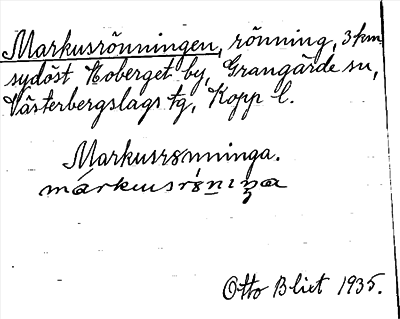 Markusrönningen, rönning, 3 km
sydöst Noberget by, Grangärde sn,
Västerbergslags tg, Kopp l.
Markusrønninga.
Otto Blixt 1935.